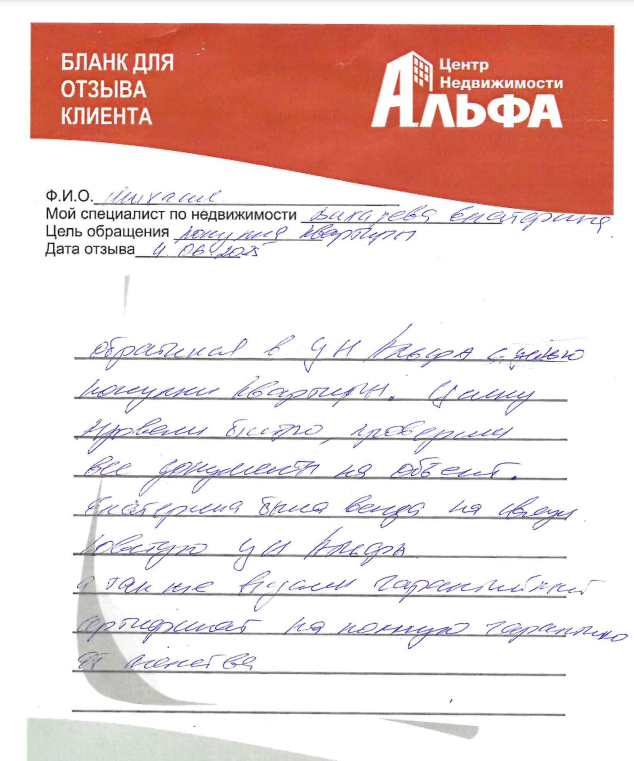 БЛАНК ДЛЯ
ОТЗЫВА
КЛИЕНТА
Центр
Недвижимости
АЛЬФА
Ф.И.О. Михаил
Мой специалист по недвижимости Екатерина
Цель обращения покупка квартиры
Дата отзыва 4.06.2025
обратился в ЦН Альфа с целью
покупки квартиры. Сделку
провели быстро, проверили
все документы на объект.
Екатерина была всегда на связи
советую ЦН Альфа
а так же выдали гарантийный
сертификат на полную гарантию